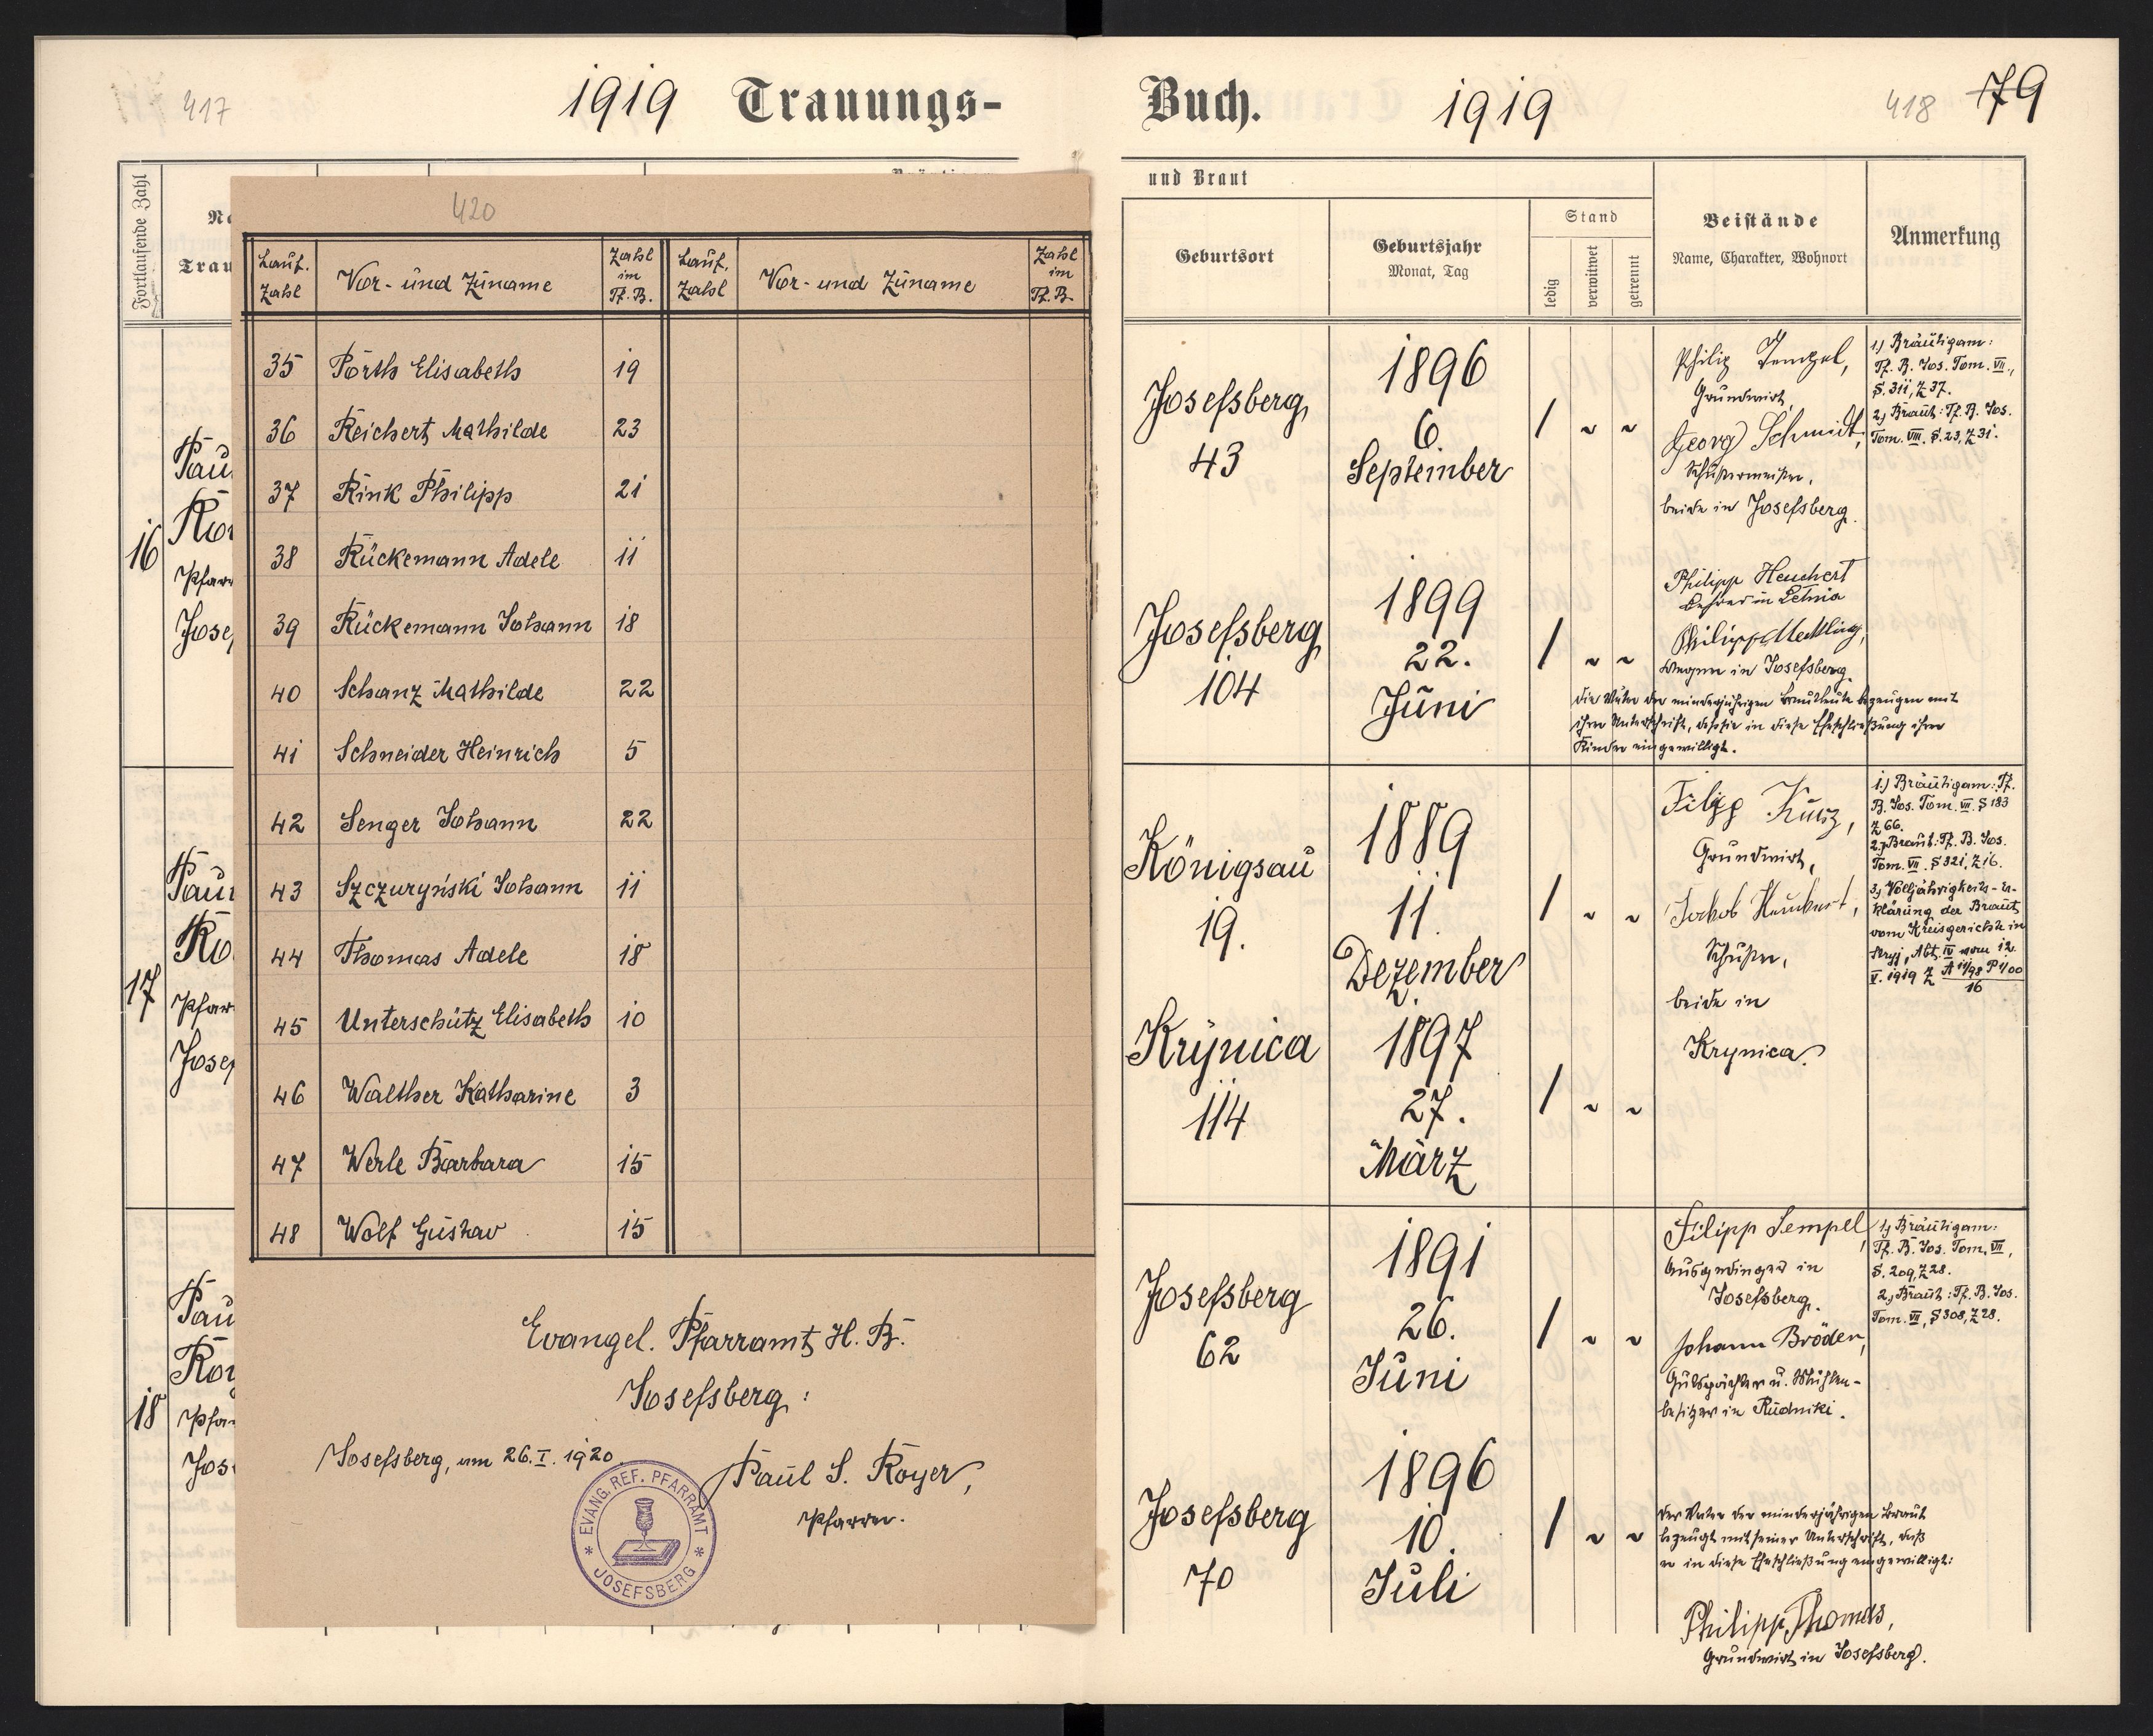 417
1919 Trauungs-
Fortlaufende Zahl
Trau
16
Pau
Jose
17
Pau
Ro
Pfar
Jose
18
Pau
Roy
Pfa
Jos
420
Lauf. Zahl
Vor- und Zuname
Zahl im Tf. B.
Lauf. Zahl
Vor- und Zuname
Zahl im Tf. B.
35 Porth Elisabeth 19
36 Reichert Mathilde 23
37 Rink Philipp 21
38 Rückemann Adele 11
39 Rückemann Johann 18
40 Schanz Mathilde 22
41 Schneider Heinrich 5
42 Senger Johann 22
43 Szczuryński Johann 11
44 Thomas Adele 18
45 Unterschütz Elisabeth 10
46 Walther Katharine 3
47 Werle Barbara 15
48 Wolf Gustav 15
Evangel. Pfarramt H. B.
Josefsberg:
Josefsberg, am 26. I. 1920.
Paul S. Royer,
Pfarrer.
* EVANG. REF. PFARRAMT *
JOSEFSBERG
Buch. 1919
418 79
und Braut
Geburtsort
Geburtsjahr
Monat, Tag
Stand
ledig
verwitwet
getrennt
Beistände
Name, Charakter, Wohnort
Anmerkung
Josefsberg
43
1896
6.
September
/ ~ ~
Philip Tempel,
Grundwirt,
Georg Schmidt,
beide in Josefsberg.
1.) Bräutigam:
Tf. B. Jos. Tom. VII.,
S. 311, Z 37.
2.) Braut: Tf. B. Jos.
Tom. VIII. S. 23, Z 31.
Josefsberg
104
1899
22.
Juni
/ ~ ~
Philipp Heuchert
Lehrer in Letnia
Philipp Mekling,
Wagner in Josefsberg.
Die Väter der minderjährigen Brautleute bezeugen mit
ihrer Unterschrift, daß sie in diese Eheschließung ihrer
Kinder eingewilligt.
Königsau
19.
1889
11.
Dezember
/ ~ ~
Filipp Kurz,
Grundwirt,
Jakob Heuchert,
Schuster,
beide in
Krynica.
1.) Bräutigam: Tf.
B. Jos. Tom. VII. S 183
Z 66.
2.) Braut: Tf. B. Jos.
Tom. VII. S 321, Z 16.
3.) Volljährigkeits-er-
klärung der Braut
vom Kreisgericht in
Stryj, Abt. IV vom 12.
V. 1919 Z
16
Krynica
114
1897
27.
März
/ ~ ~
Josefsberg
62
1891
26.
Juni
/ ~ ~
Filipp Tempel,
Ausgedinger in
Josefsberg.
Johann Bröder,
Gutspächter u. Mühlen-
besitzer in Rudniki.
1.) Bräutigam:
Tf. B. Jos. Tom. VII,
S. 209, Z 28.
2.) Braut: Tf. B. Jos.
Tom. VII, S 308, Z 28.
Josefsberg
70
1896
10.
Juli
/ ~ ~
Der Vater der minderjährigen Braut
bezeugt mit seiner Unterschrift, daß
er in diese Eheschließung eingewilligt:
Philipp Thomas,
Grundwirt in Josefsberg.